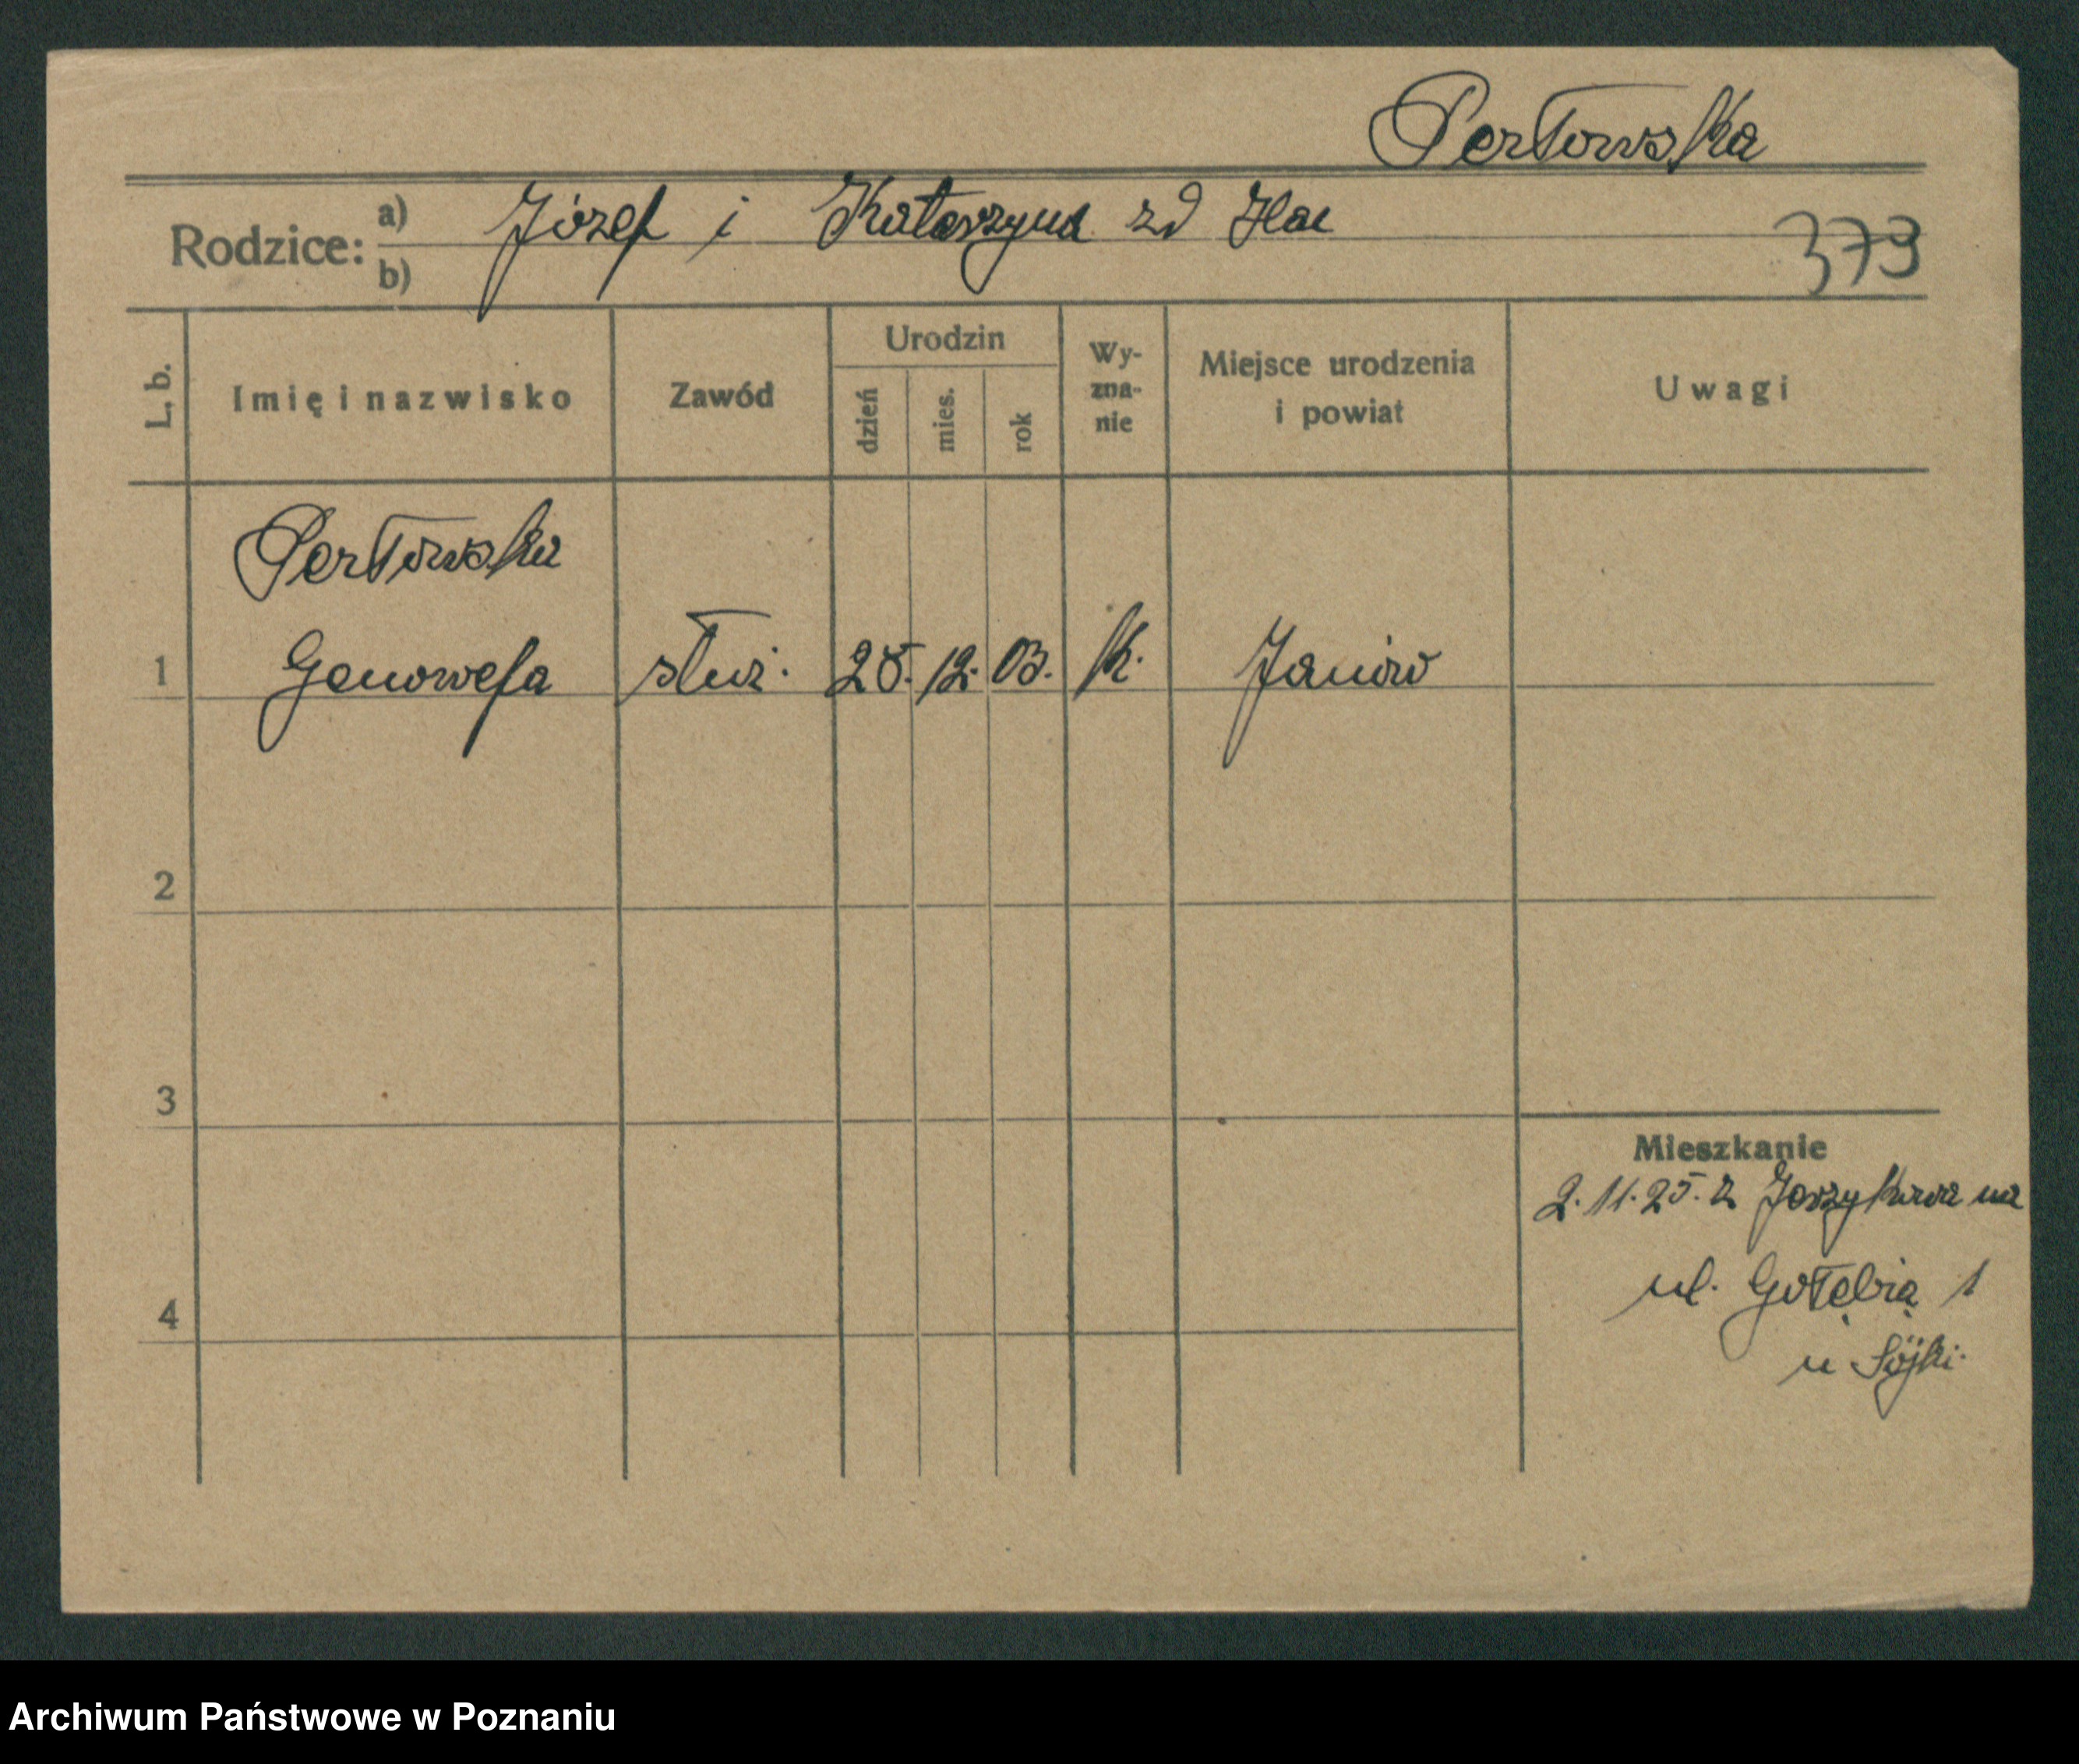 Perłowska
Rodzice: a) Józef i Katarzyna zd
b)
379
L. b.
Imię i nazwisko
Zawód
Urodzin
dzień
mies.
rok
Wy-
zna-
nie
Miejsce urodzenia
i powiat
Uwagi
Perłowska
1 Genowefa służ. 28. 12. 03. k. Janów
2
3
4
Mieszkanie
2.11.25. z Jerzykowa na
ul. Gołębią 1
u Sójki.
Archiwum Państwowe w Poznaniu